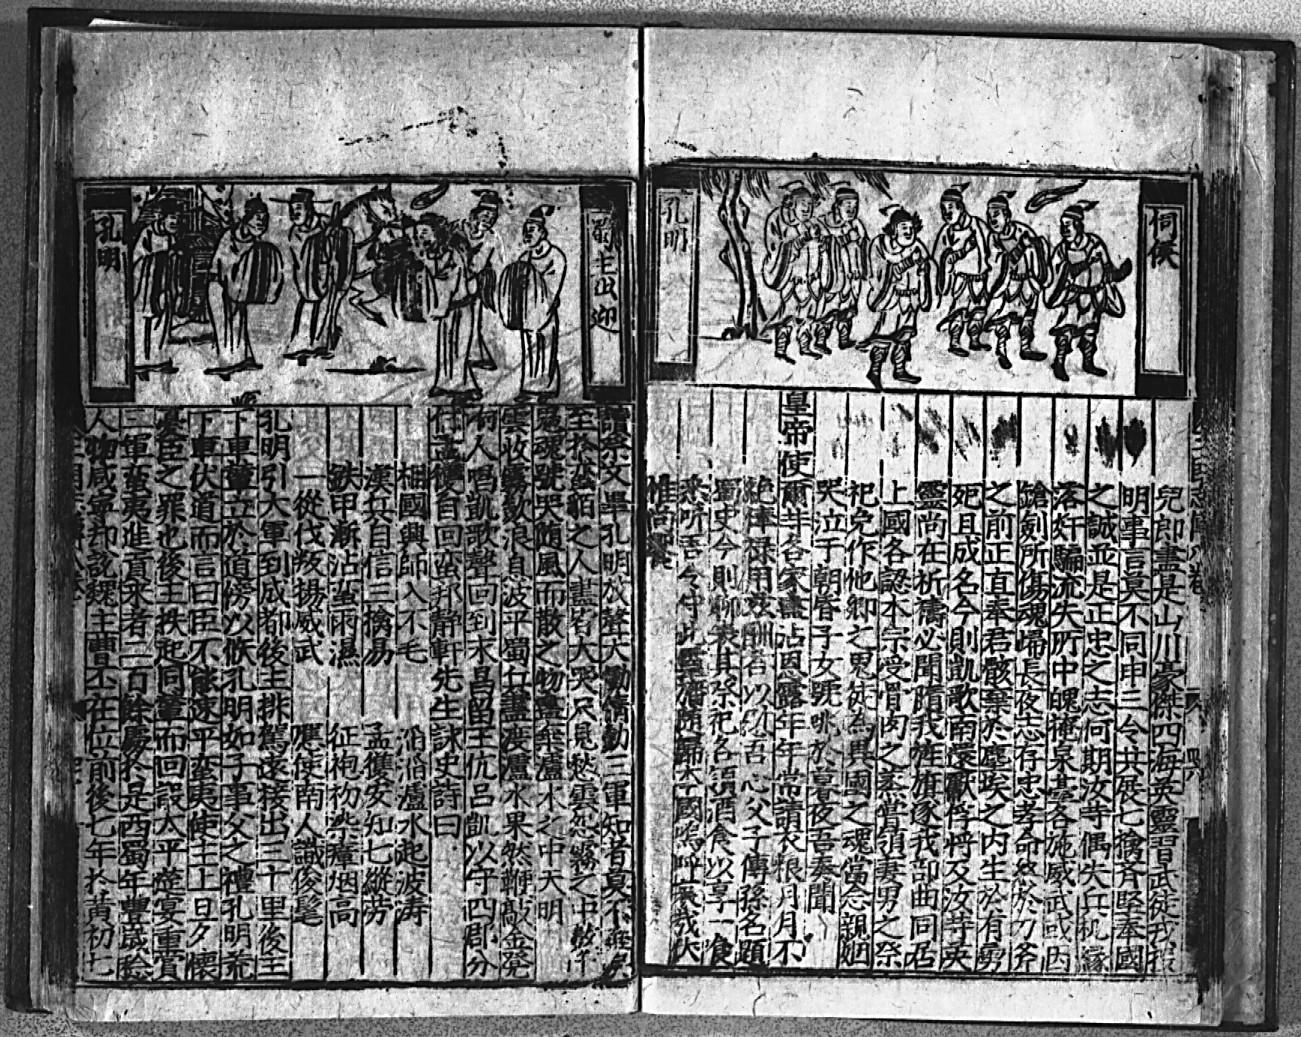 伺候
孔明
兒郎盡是山川豪傑四海英靈習武從戎
明事言莫不同申三令共展七擒齊堅奉國
之誠並是正忠之志何期汝等偶失兵机緣
落奸騙流失所中魄掩泉臺各施威武或因
鎗劍所傷魂歸長夜志存忠孝命終於刀斧
之前正直奉君骸棄於塵埃之内生於有勇
死且成名今則凱歌南還獻俘將及汝等英
靈尚在祈禱必聞隨我旌旗逐我部曲同居
上國各認本宗受骨肉之蒸嘗領妻男之祭
祀免作他鄉之鬼徒為異國之魂當念親姻
哭泣于朝昏子女號咷於暮夜吾奏聞
皇帝使爾等各家盡沾恩露年年常請衣粮月月不
絶俸禄用茲酬答以慰吾心父子傳孫名題
蜀史今則聊表其祭祀各須酒食以享一
來听吾令付此靈旛隨歸本國嗚呼哀哉伏
惟尚饗
蜀主出迎
孔明
讀祭文畢孔明放聲大慟情動三軍知者莫不
至於蛮貊之人盡皆大哭只見愁雲怨霧之中
鬼魂號哭隨風而散之物盡棄瀘水之中天明
雲收霧歛浪息波平蜀兵盡度瀘水果然鞭敲金鐙
响人唱凱歌聲回到永昌留王伉吕凱以守四郡分
付孟獲自回蛮邦靜軒先生詠史詩曰
相國興師入不毛 滔滔瀘水起波濤
漢兵自信三擒易 孟獲安知七縱勞
鉄甲漸沾蛮雨濕 征袍初染瘴烟高
一從伐叛揚威武 應使南人識俊髦
孔明引大軍到成都後主排駕遠接出三十里後主
下車輦立於道傍以候孔明如子事父之禮孔明
下車伏道而言曰臣不能速平蛮夷使主上旦夕懷
憂臣之罪也後主扶起同輦而回設大平筵宴重賞
三軍蛮夷進貢來者二百餘處於是西蜀年豐歲稔
人物咸寧却說魏主曹丕在位前後七年於黃初七